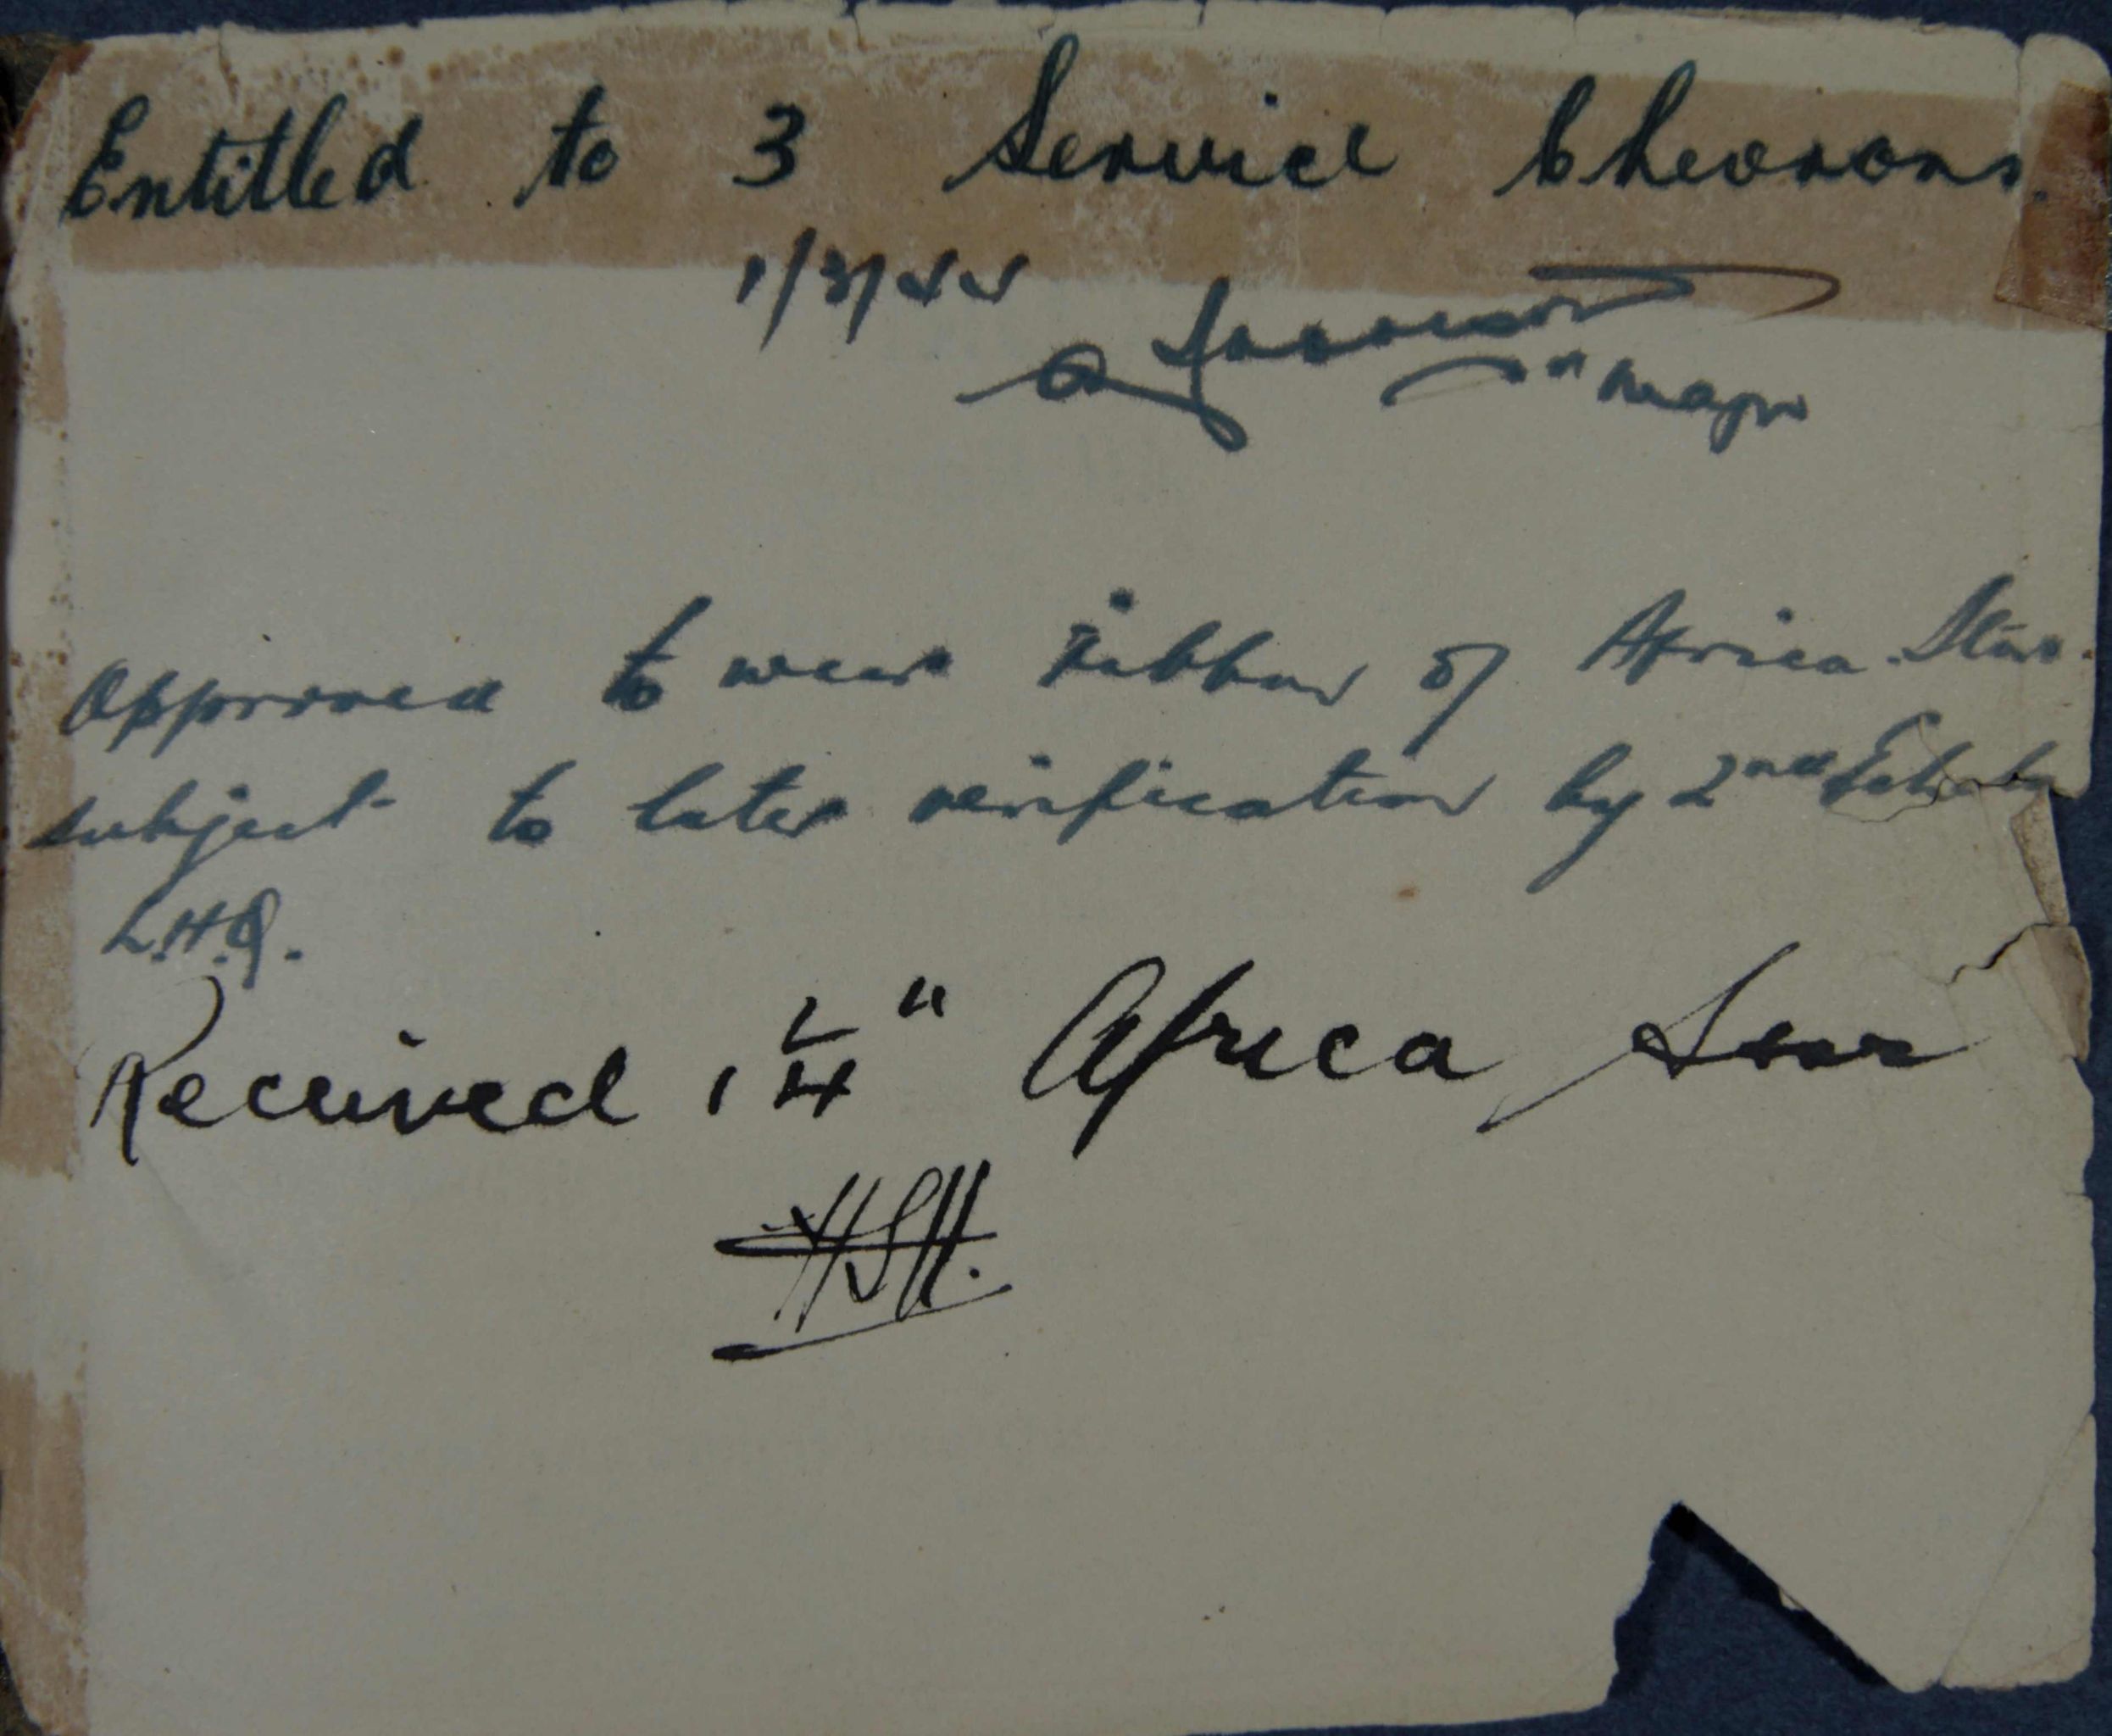 Entitled to 3 Service Chevrons.
1/3/44
Major
Approved to wear ribbon of Africa Star.
subject to later verification by 2nd Echelon
L.H.Q.
Received 1 1/4" Africa Star
HSH.